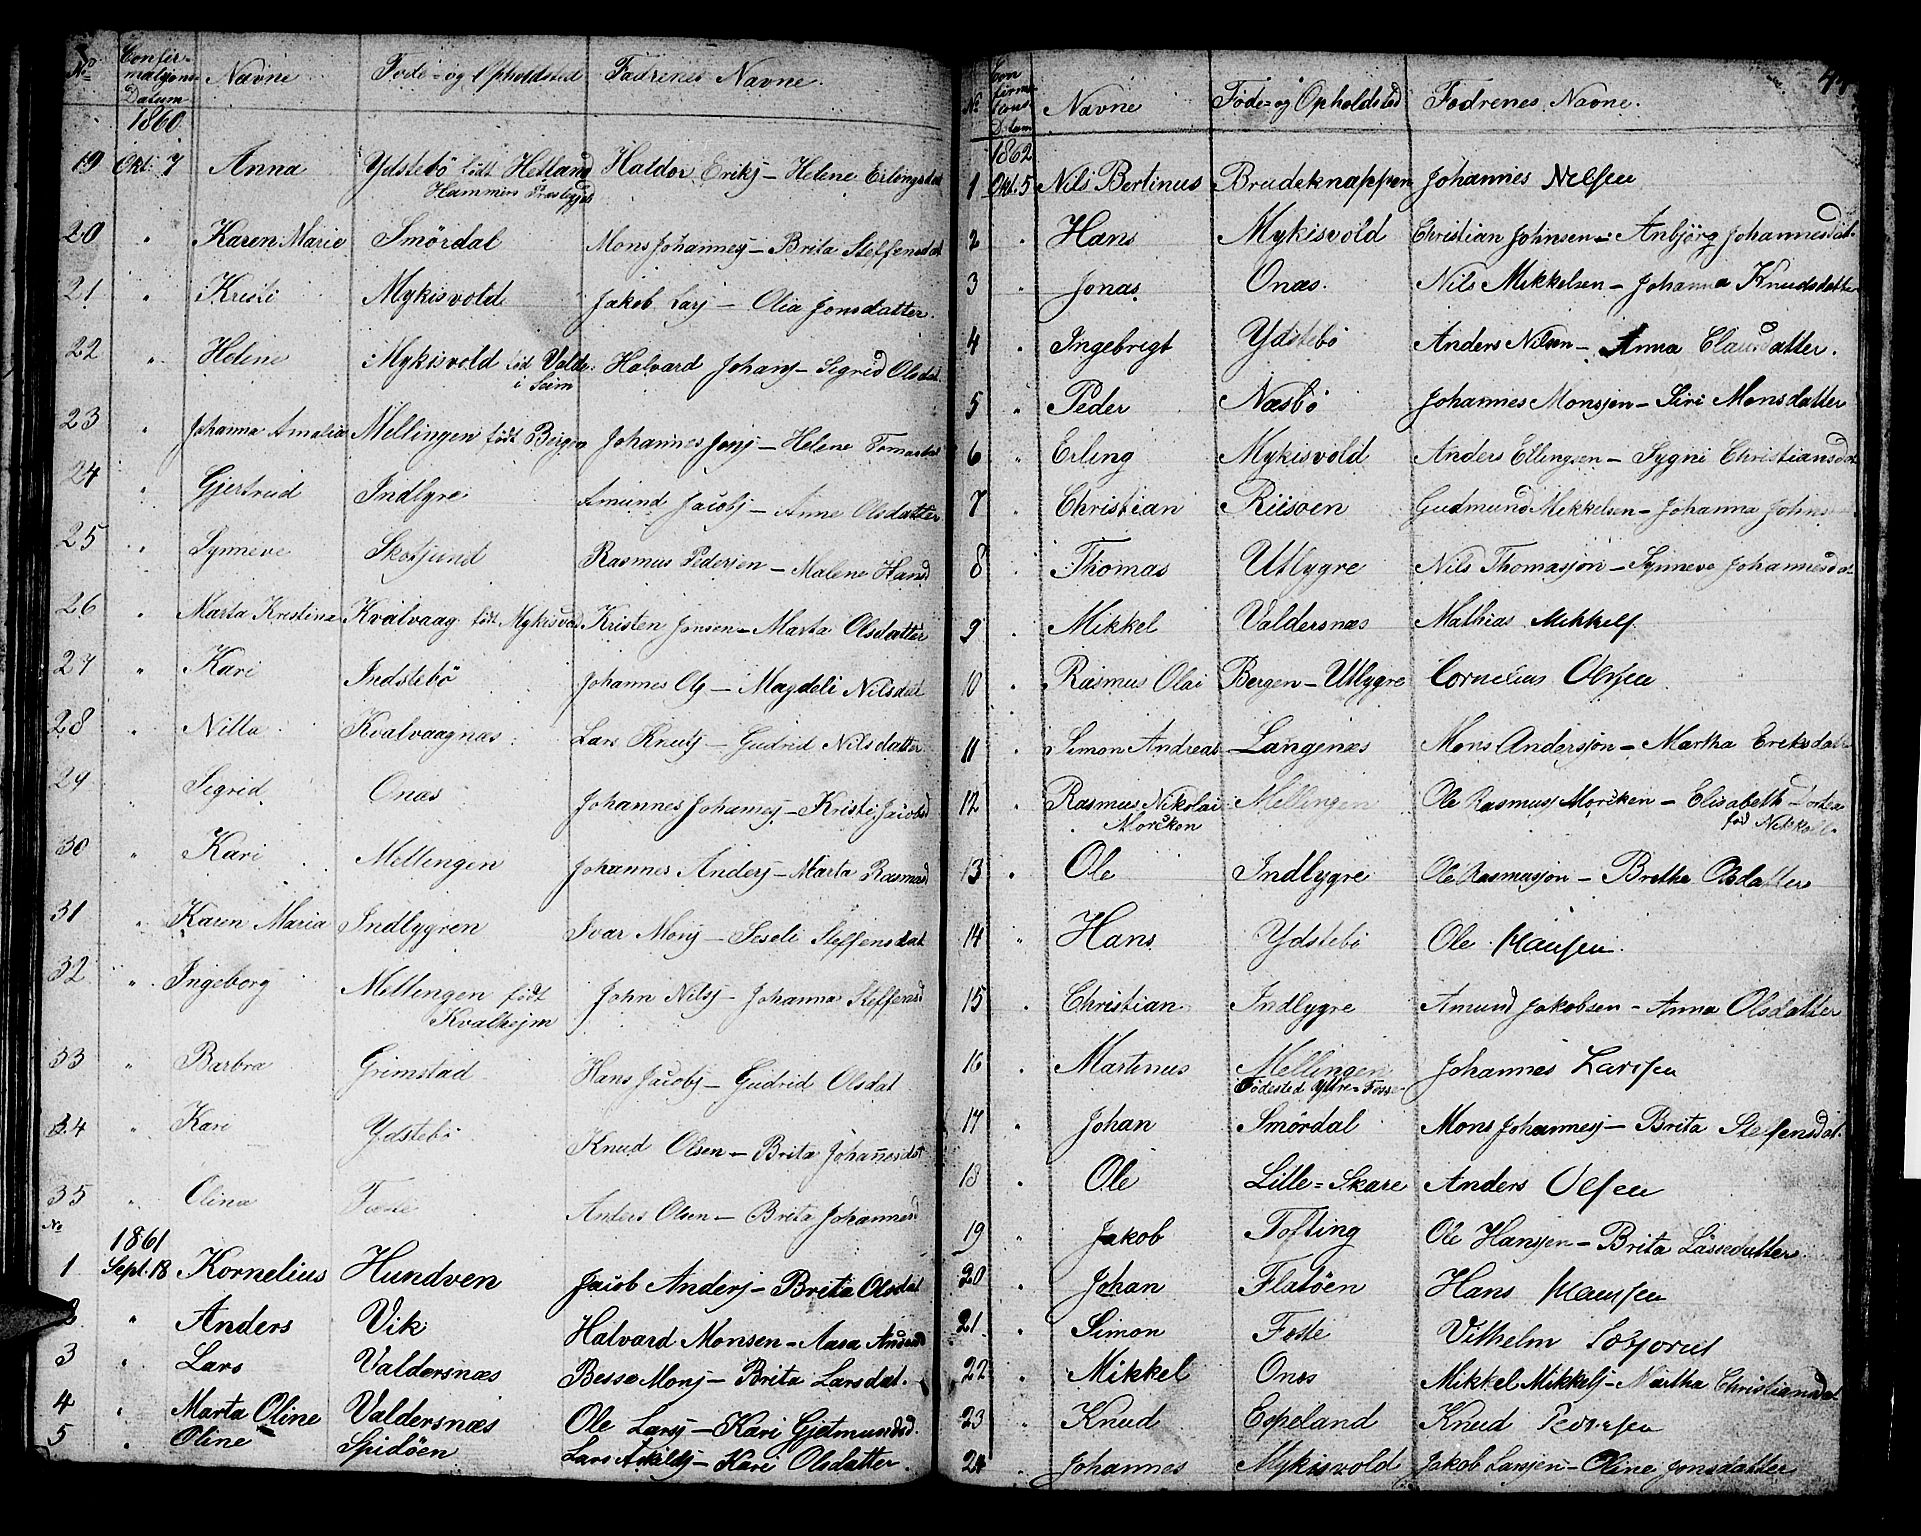 No Confir-mations Datum Navne Føde- og Opholdsted Fædrenes Navne.
1860
19 Okt. 7 Anna Ydstebö født Hetland Haldor Eriks - Helene Erlingsdat
Hammers Præstgjeld
20 " Karen Marie Smördal Mons Johannes - Brita Steffensdat
21 " Kristi Mykisvold Jakob Lars - Olia Jonsdatter.
22 " Heline Mykisvold fød Valde Halvard Johans - Sigrid Olsdat.
i Seim
23 " Johanna Amalia Mellingen født Bergen Johannes Jons - Helene Tomasdat
24 " Gjertrud Indlygre Amund Jacobs - Anne Olsdatter
25 " Synneve Skotsund Rasmus Pedersen - Malene Hansd
26 " Marta Kristina Kvalvaag født Mykisvold Kristen Jonsen - Marta Olsdatter
27 " Kari Indstebö Johannes Ols - Magdeli Nilsdat
28 " Nille Kvalvaagnæs Lars Knuts - Gudrid Nilsdatter
29 Sigrid Onæs Johannes Johannes - Kristi Jacobsd
30 " Kari Mellingen Johannes Anders - Marta Rasmusd
31 " Karen Maria Indlygren Ivar Mons - Seseli Steffensdat
32 " Ingeborg Mellingen født John Nils - Johanna Steffensd
Kvalhejm
33 " Barbra Grimstad Hans Jacobs - Gudrid Olsdat
34 " Kari Ydstebö Knud Olsen - Brita Johannesdat
35 " Olina Anders Olsen - Brita Johannesd
No 1861
1 Sept. 18 Kornelius Hundven Jacob Anders - Brita Olsdat
2 " Anders Vik Halvard Monsen - Aasa Andersd
3 " Lars Valdersnæs Besse Mons - Brita Larsdat.
4 " Marta Oline Valdersnæs Ole Lars - Kari Gjetmundsd.
5 " Oline Spidöen Lars Askilds - Kari Olsdatter.
44
No Confirma-tions Datum Navne Føde- og Opholdsted Fædrenes Navne.
1862
1 Okt. 5 Nils Bertinus Brudeknappen Johannes Nelsen
2 " Hans Mykisvold Christian Johnsen - Anbjörg Johannesdat.
3 " Jonas Onæs. Nils Mikkelsen - Johanna Knudsdatter
4 " Ingebrigt Ydstebö Anders Nilsen - Anna Clausdatter.
5 " Peder Næsbö Johannes Monsson - Siri Monsdatter
6 " Erling Mykisvold Anders Ellingsen - Sygni Christiansdat
7 " Christian Riisøen Gudmund Mikkelsen - Johanna Johns
8 " Thomas Utlygre Nils Thomasson - Synneve Johannesdat
9 " Mikkel Valdersnæs Mathias Mikkels
10 " Rasmus Olai Bergen - Utlygre Cornelius Olsen
11 " Simon Andreas Langenæs Mons Andersson - Martha Eriksdatt
12 " Rasmus Nikolai Mellingen Ole Rasmuss Morcken - Elisabeth
Morcken fød
13 " Ole Indlygre Ole Rasmusson - Brethe Olsdatter
14 " Hans Ydstebö Ole Hansen
15 " Christian Indlygre Amund Jakobsen - Anna Olsdatter
16 " Martinus Mellingen Johannes Larssen
Fødested Yttre-Fosse
17 " Johan Smördal Mons Johanness - Brita Steffensdat.
18 " Ole Lille-Skare Anders Olsen
19 " Jakob Tofting Ole Hansen - Brita Lassedatter
20 " Johan Flatöen Hans Hanssen
21 " Simon Foste Vilhelm
22 " Mikkel Onæs Mikkel Mikkels - Martha Christiansdat
23 " Knud Espeland Knud Pedersen
24 " Johannes Mykisvold Jakob Larsen - Oline Jonsdatter